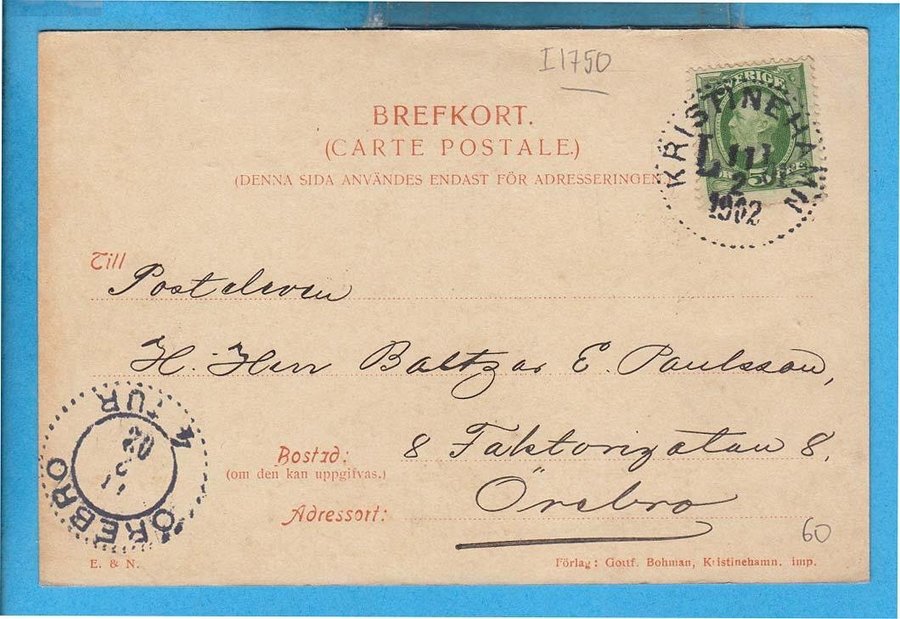 I 1750
BREFKORT.
(CARTE POSTALE.)
(DENNA SIDA ANVÄNDES ENDAST FÖR ADRESSERINGEN
SVERIGE
KRISTINEHAMN
2
1902
Till
Posteleven
H. Herr Baltzar E. Paulsson,
Bostad: 8 Faktorigatan 8,
(om den kan uppgifvas.)
Adressort: Örebro
ÖREBRO
4 TUR
02
60
E. & N.
Förlag: Gottf. Bohman, Kristinehamn. imp.